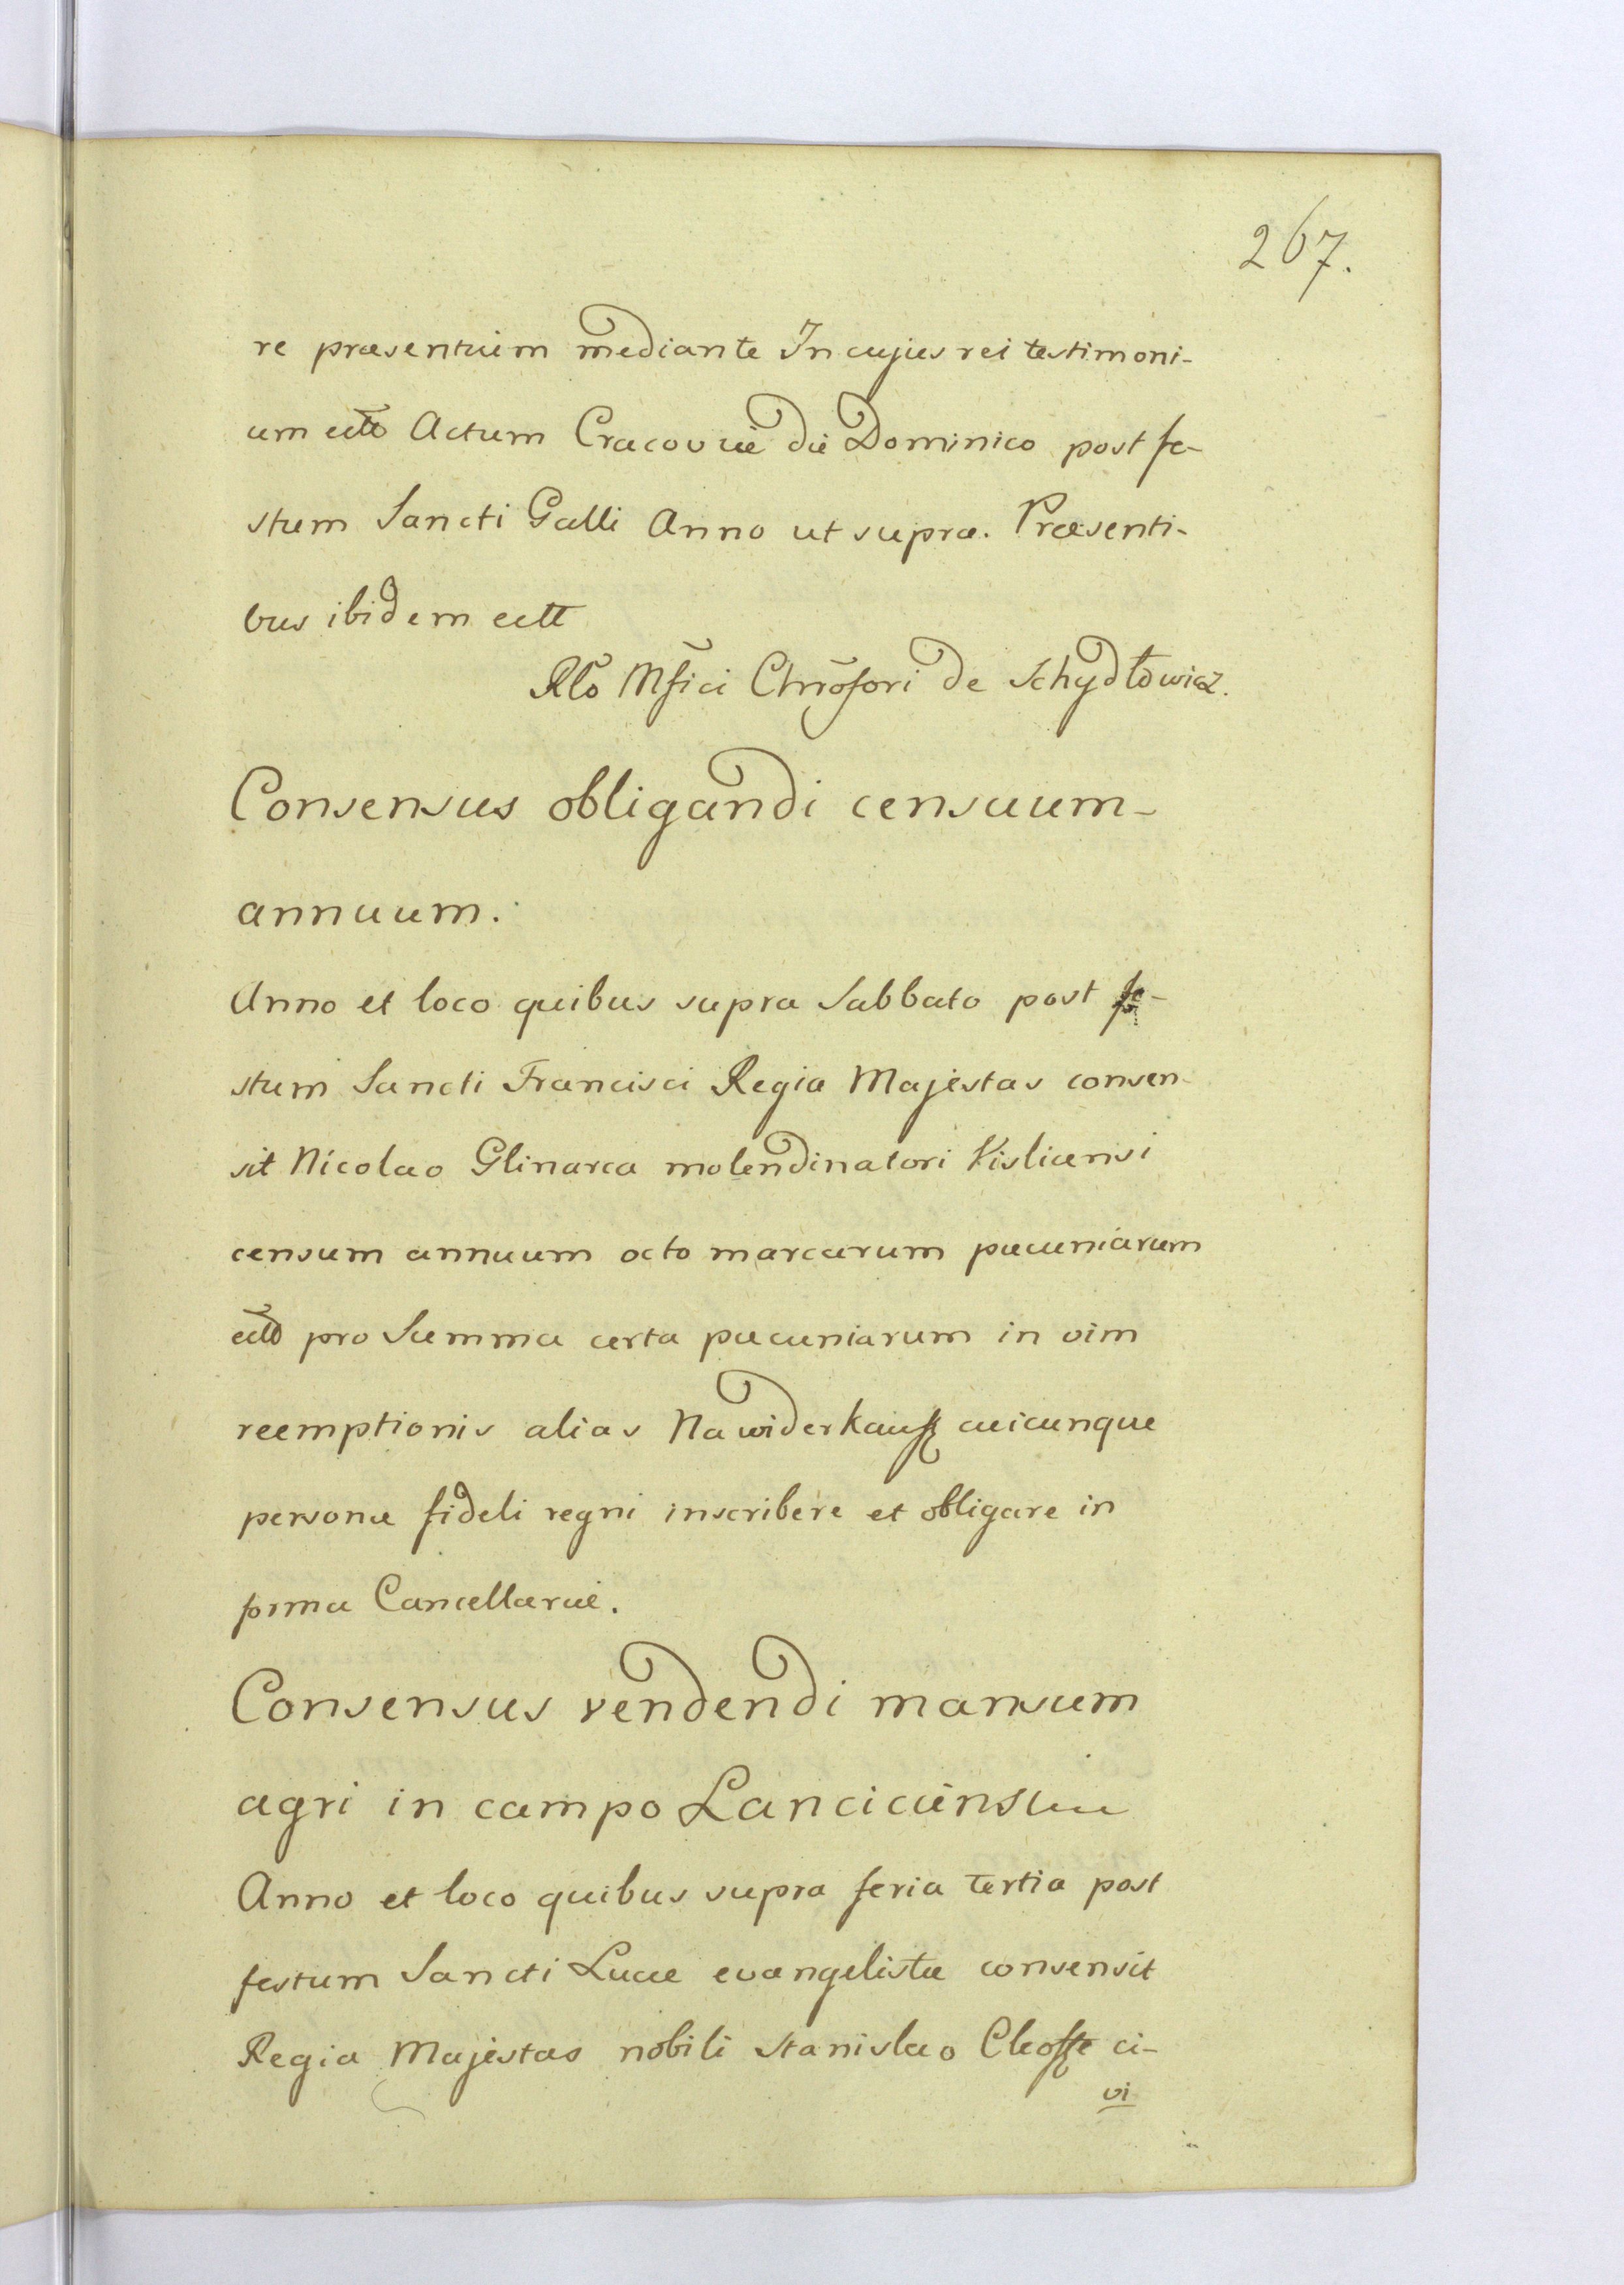 267.
re præsentium mediante In cujus rei testimoni-
um ectt Actum Cracoviæ die Dominico post fe-
stum Sancti Galli Anno ut supra. Præsenti-
bus ibidem ectt
Rlo Mfici Chrõfori de Schydłowicz.
Consensus obligandi censuum-
annuum.
Anno et loco quibus supra Sabbato post fe-
stum Sancti Francisci Regia Majestas consen-
sit Nicolao Glinarca molendinatori Visliciensi
censum annuum octo marcarum pecuniarum
ectt pro Summa certa pecuniarum in vim
reemptionis alias Na widerkauff cuicunque
personæ fideli regni inscribere et obligare in
forma Cancellariæ.
Consensus vendendi mansum
agri in campo Lanciciensi
Anno et loco quibus supra feria tertia post
festum Sancti Lucæ evangelistæ consensit
Regia Majestas nobili Stanislao ci-
vi